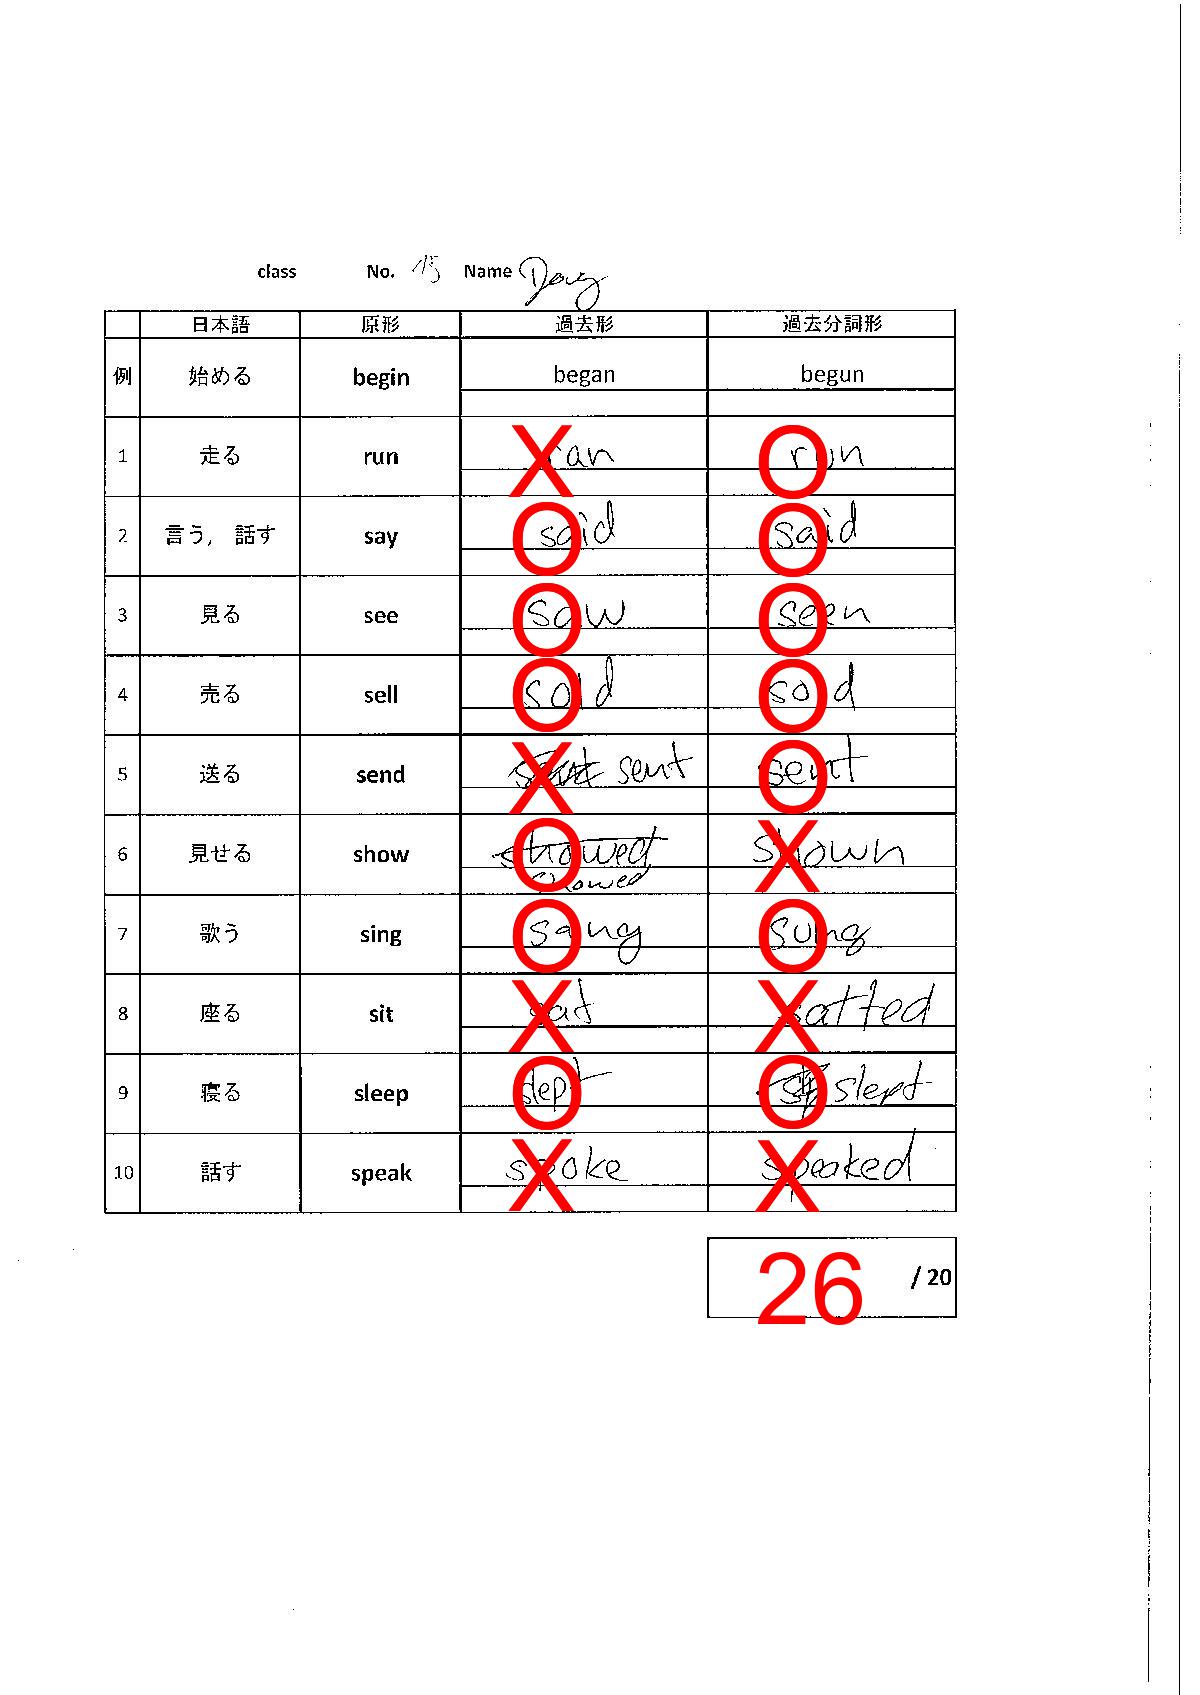 class No. 15 Name Doug
日本語 原形 過去形 過去分詞形
例 始める begin began begun
1 走る run X ran O run
2 言う, 話す say O said O said
3 見る see O saw O seen
4 売る sell O sold O sold
5 送る send X sent O sent
6 見せる show O showed X shown
showed
7 歌う sing O sang O sung
8 座る sit X sat X satted
9 寝る sleep O slept O slept
10 話す speak X spoke X speaked
26 / 20